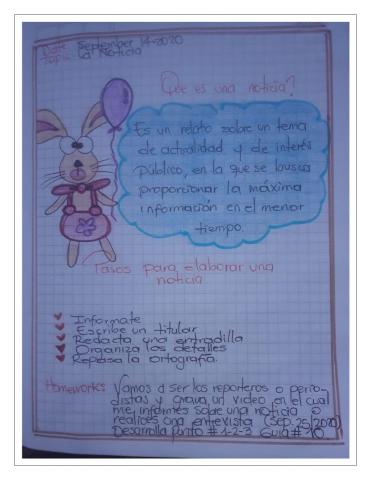 Date: September 14-2020
Topic: La Noticia
Que es una noticia?
Es un relato sobre un tema
de actualidad y de interés
público, en la que se busca
proporcionar la máxima
información en el menor
tiempo.
Pasos para elaborar una
noticia
Informate
Escribe un titular
Redacta una entradilla
Organiza los detalles
Repasa la ortografía.
Homeworks Vamos a ser los reporteros o perio-
distas y grava un video en el cual
me informes sobre una noticia o
realices una entrevista (Sep. 25/2020)
Desarrolla punto # 1-2-3 Guia # 10